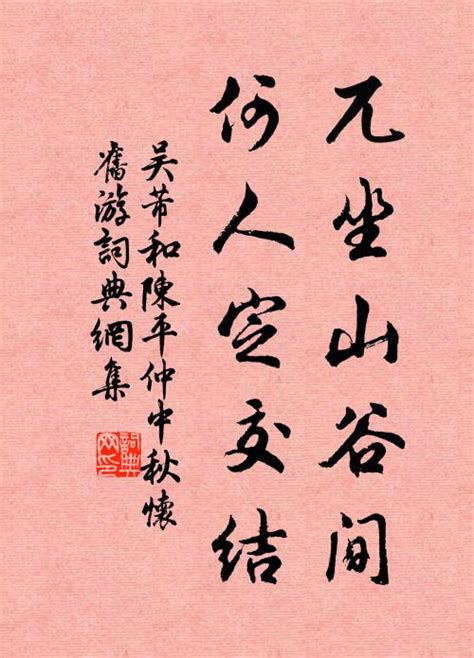 兀坐山谷间
何人定交结
吴芾和陳平仲中秋懷
舊游詞典網集
詞典
网印